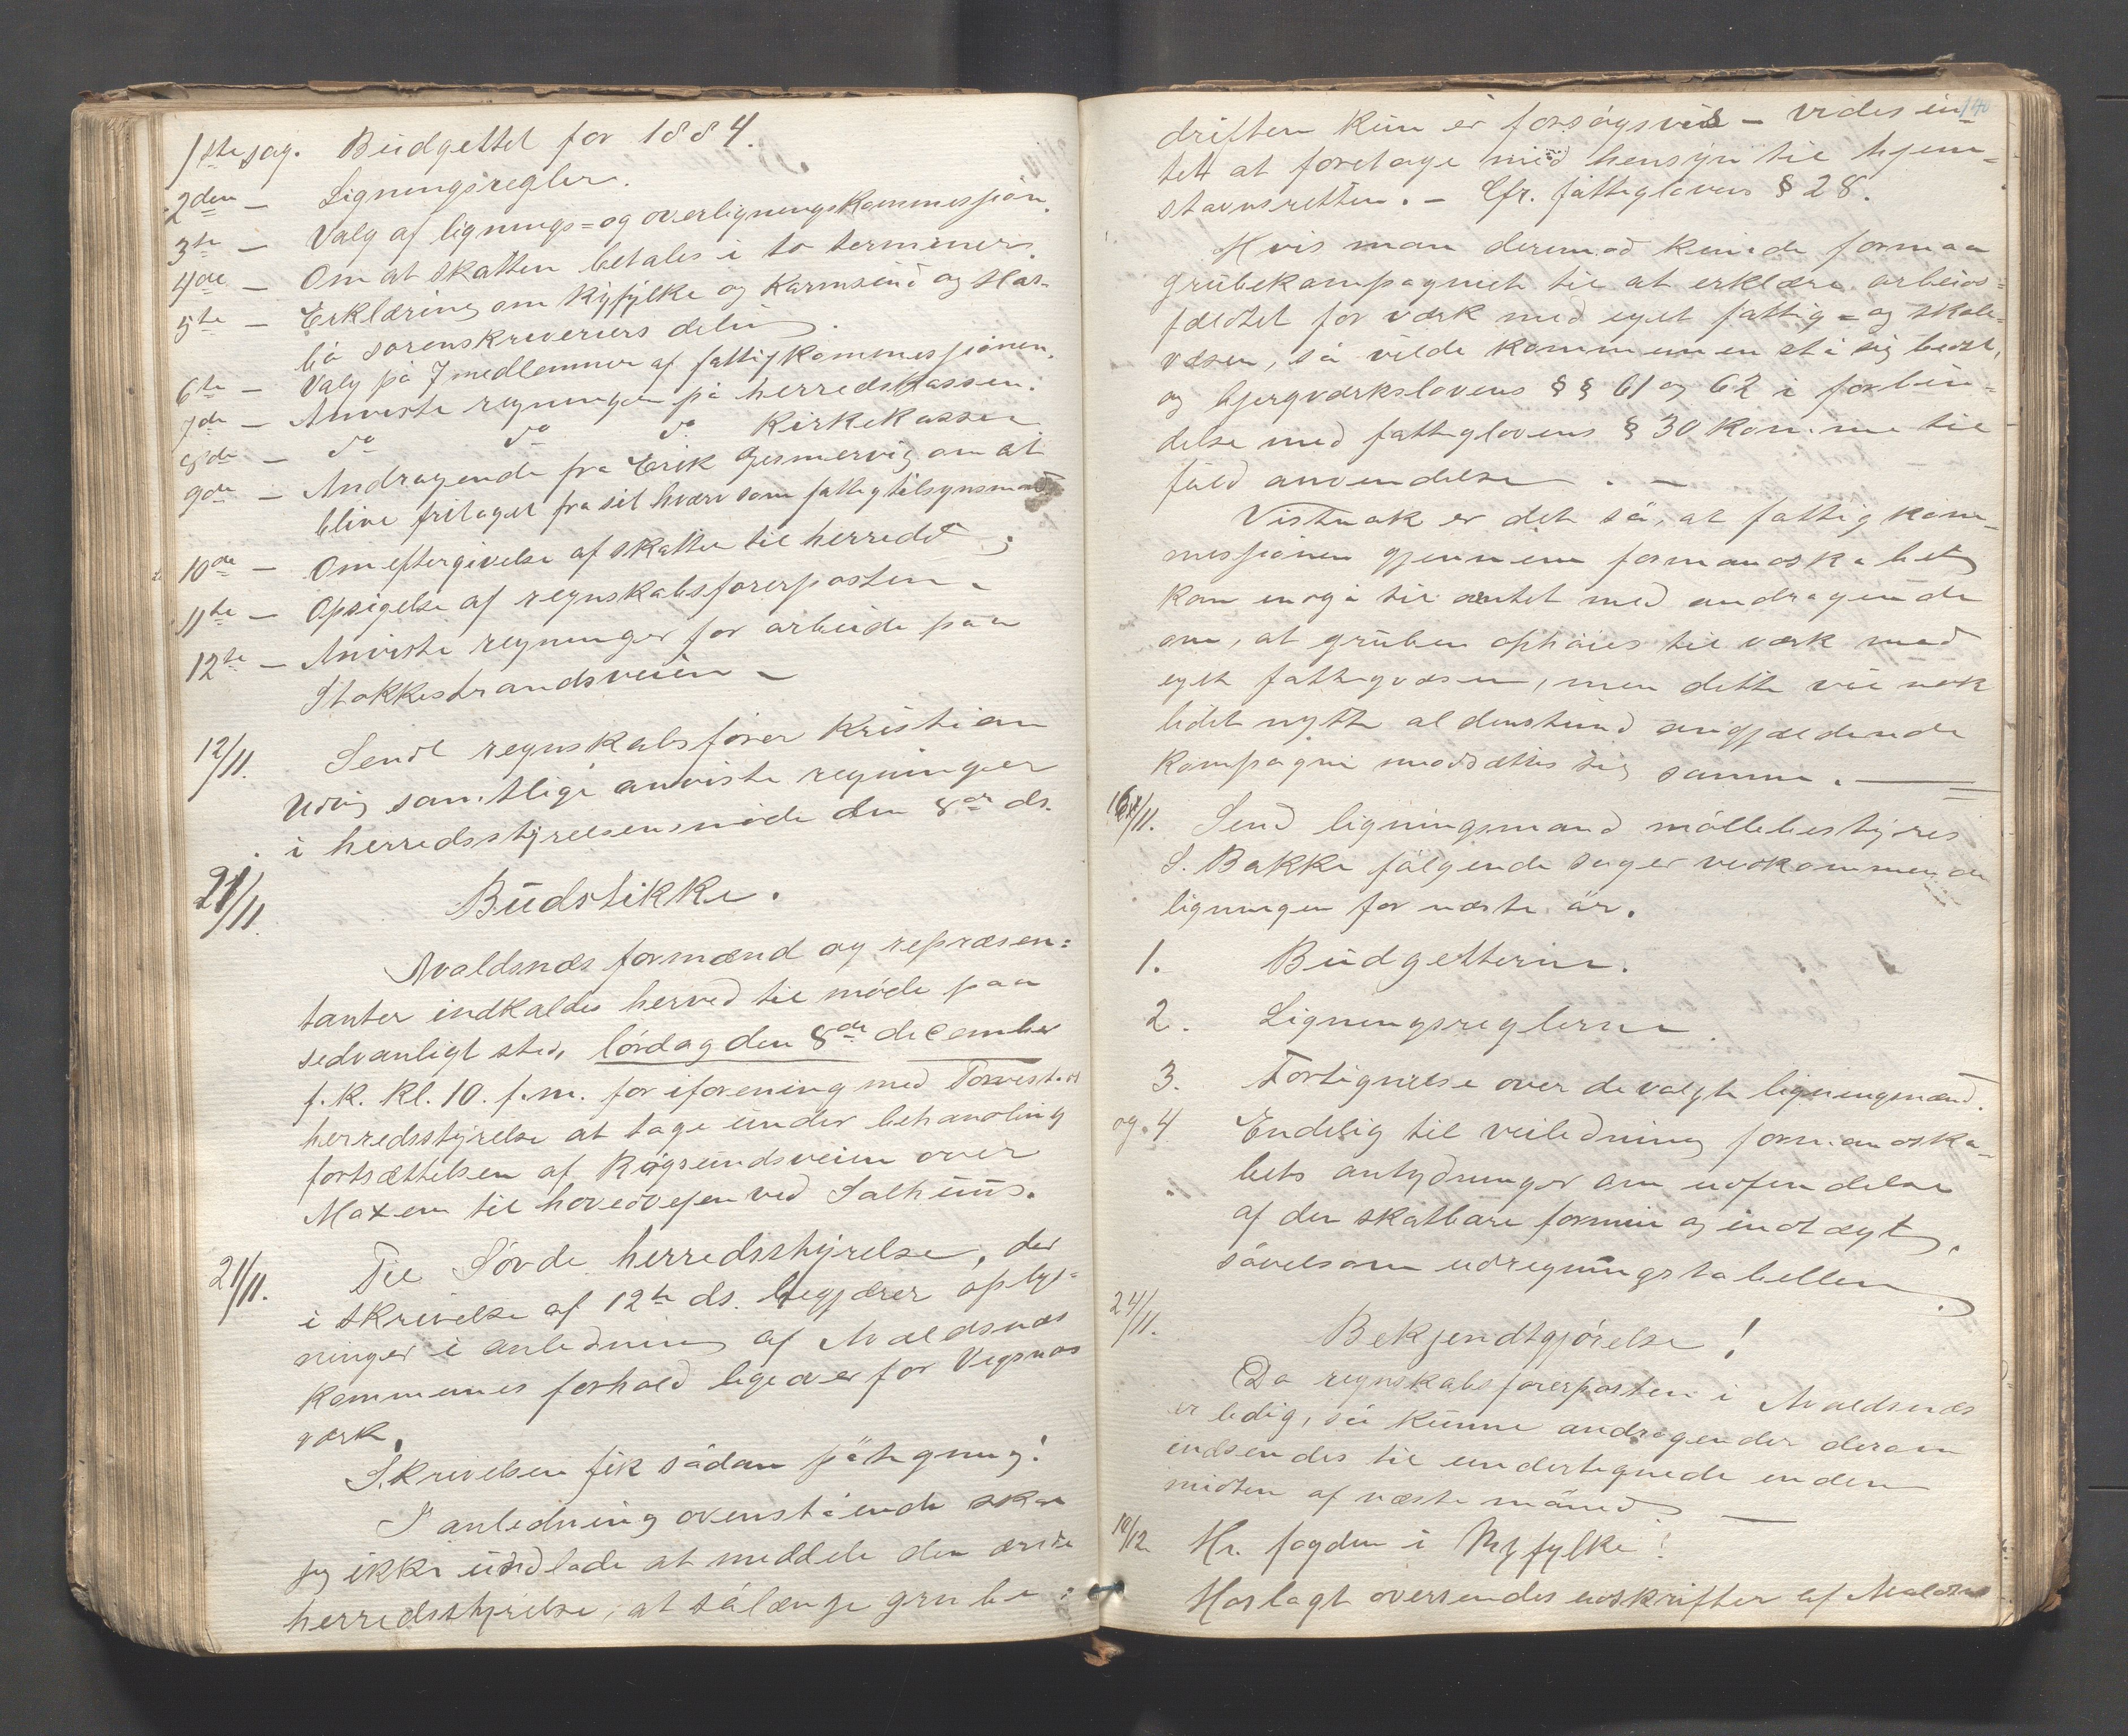 1ste sag. Budgettet for 1884.
2den — Ligningsregler.
3te — Valg af lignings= og overligningskommissjon.
4de — Om at skatten betales i to terminer.
5te — Erklæring om Ryfylke og Karmsund og Has-
bö sorenskriveriers deling.
6te — Valg på 7 medlemmer af fattigkommissjonen.
7de — Anviste regninger på herredskassen.
8de — do do do Kirkekassen
9de — Andragende fra Erik Gismervig om at
blive fritaget fra sit hverv som fattigtilsynsmand
10de — Om eftergivelse af skatter til herredet;
11te — Opsigelse af regnskabsförerposten.
12te — Anviste regninger for arbeide paa
Stokkestrandsveien —
12/11. Sendt regnskabsfører Kristian
Udvig samtlige anviste regninger
i herredsstyrelsensmöde den 8de ds.
21/11. Budstikke.
Avaldsnes formænd og repræsen=
tanter indkaldes herved til møde paa
sedvanligt sted, lørdag den 8de december
f.k. kl. 10. f.m. for iforening med Torvestads
herredsstyrelse at tage under behandling
fortsættelsen af Røgsundsveien over
Moxem til hovedvejen ved Salhuus.
21/11. Til Søvde herredsstyrelse, der
i skrivelse af 12te ds. begjærer oplys=
ninger i anledning af Avaldsnæs
kommunes forhold ligeover for Vigsnæs
værk.
Skrivelsen fik sådan påtegning:
I anledning ovenstående skal
jeg ikke undlade at meddele den ærede
herredsstyrelse, at sålænge grube=
140
driften kun er forsøgsvis — vides in=
tet at foretage med hensyn til hjem=
stavnsretten. — Cfr. fattiglovens § 28.
Hvis man derimod kunde formaa
grubekompagniet til at erklære arbeids=
fæltet for værk med eget fattig= og skole=
væsen, så vilde kommunen stå sig bedst,
og bjergværkslovens §§ 61 og 62 i forbin=
delse med fattiglovens § 30 komme til
fuld anvendelse. —
Vistnok er det så, at fattigkom=
missjonen gjennem formandskabet
kan indgå til amtet med andragende
om, at gruben ophöies til værk med
eget fattigvæsen, men dette vil nok
lidet nytte aldenstund angjældende
kompagni modsætter sig samme. —
16/11. Send ligningsmand möllebestyrer
S. Bakke fölgende sager vedkommende
ligningen for næste år.
1. Budgetterne.
2. Ligningsreglerne
3. Fortegnelse over de valgte ligningmænd.
og. 4 Endelig til veiledning formandska=
bets antydninger om udfindelse
af den skatbare formue og indtægt,
såvelsom udregningstabellen.
24/11. Bekjendtgjörelse!
Da regnskabsförerposten i Avaldsnæs
er ledig, så kunne andragender derom
indsendes til undertegnede inden
midten af næste måned —
10/12 Hr. fogden i Ryfylke!
Hoslagt oversendes udskrifter af Avaldsnæs